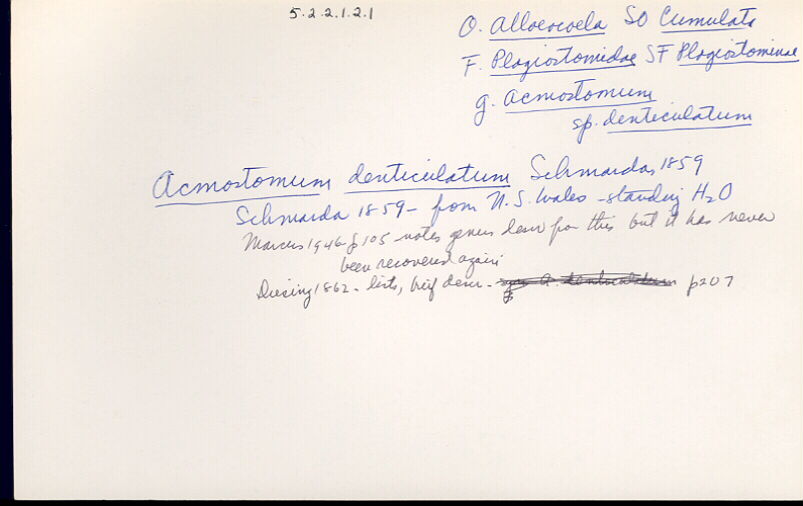 5.2.2.1.2.1
O. Alloeocoela SO Cumulata
F. Plagiostomidae SF Plagiostominae
g. Acmostomum
sp. denticulatum
Acmostomum denticulatum Schmarda, 1859
Schmarda 1859 - from N.S. Wales - standing H2O
Marcus 1946 p 105 notes genus descr for this but it has never
been recovered again
Diesing 1862 - lists, brief descr - p207